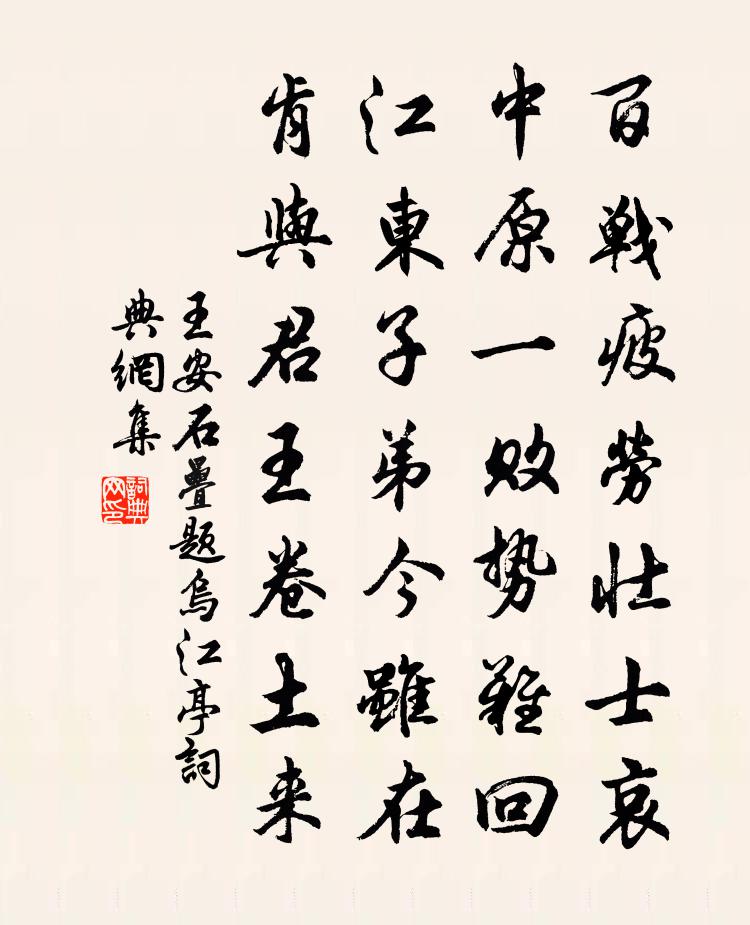 百戰疲勞壯士哀
中原一敗勢難回
江東子弟今雖在
肯與君王卷土来
王安石疊題烏江亭詞
典網集
詞典
网印